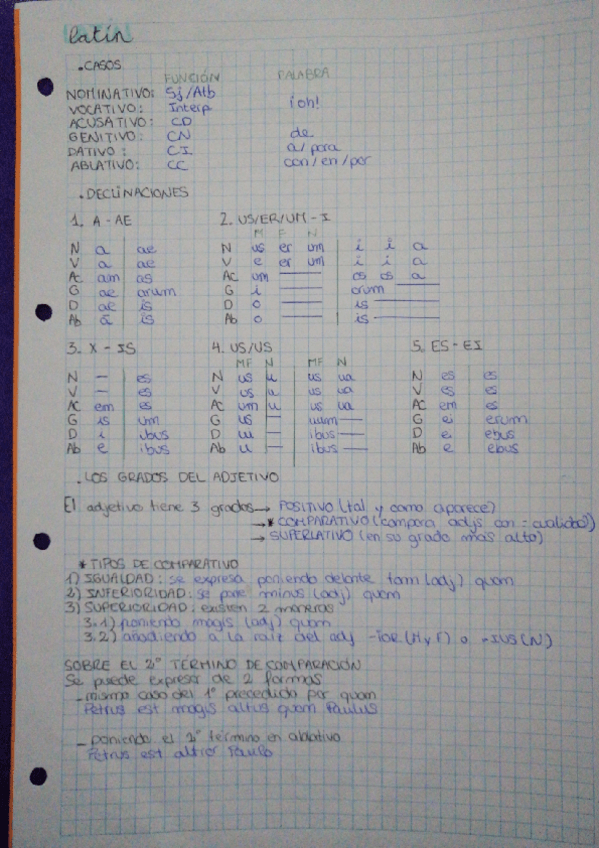 latín
. CASOS
FUNCIÓN PALABRA
NOMINATIVO: Sj/Atb
VOCATIVO: Interp ¡oh!
ACUSATIVO: CD
GENITIVO: CN de
DATIVO: CI a/para
ABLATIVO: CC con/en/por
. DECLINACIONES
1. A - AE 2. US/ER/UM - I
M F N
N a ae N us er um i i a
V a ae V e er um i i a
Ac am as Ac um os os a
G ae arum G i orum
D ae is D o is
Ab ā is Ab o is
3. X - IS 4. US/US 5. ES - EI
MF N MF N
N - es N us u us ua N es es
V - es V us u us ua V es es
AC em es AC um u us ua AC em es
G is um G us uum G ei erum
D i ibus D ui ibus D ei ebus
Ab e ibus Ab u ibus Ab e ebus
. LOS GRADOS DEL ADJETIVO
El adjetivo tiene 3 grados → POSITIVO (tal y como aparece)
→ * COMPARATIVO (compara adjs con = cualidad)
→ SUPERLATIVO (en su grado más alto)
* TIPOS DE COMPARATIVO
1) IGUALDAD: se expresa poniendo delante tam (adj) quam
2) INFERIORIDAD: se pone minus (adj) quam
3) SUPERIORIDAD: existen 2 maneras
3.1) poniendo magis (adj) quam
3.2) añadiendo a la raíz del adj -IOR (M y F) o -IUS (N)
SOBRE EL 2º TERMINO DE COMPARACIÓN
Se puede expresar de 2 formas
- mismo caso del 1º precedido por quam
Petrus est magis altus quam Paulus
- poniendo el 2º término en ablativo
Petrus est altior Paulo